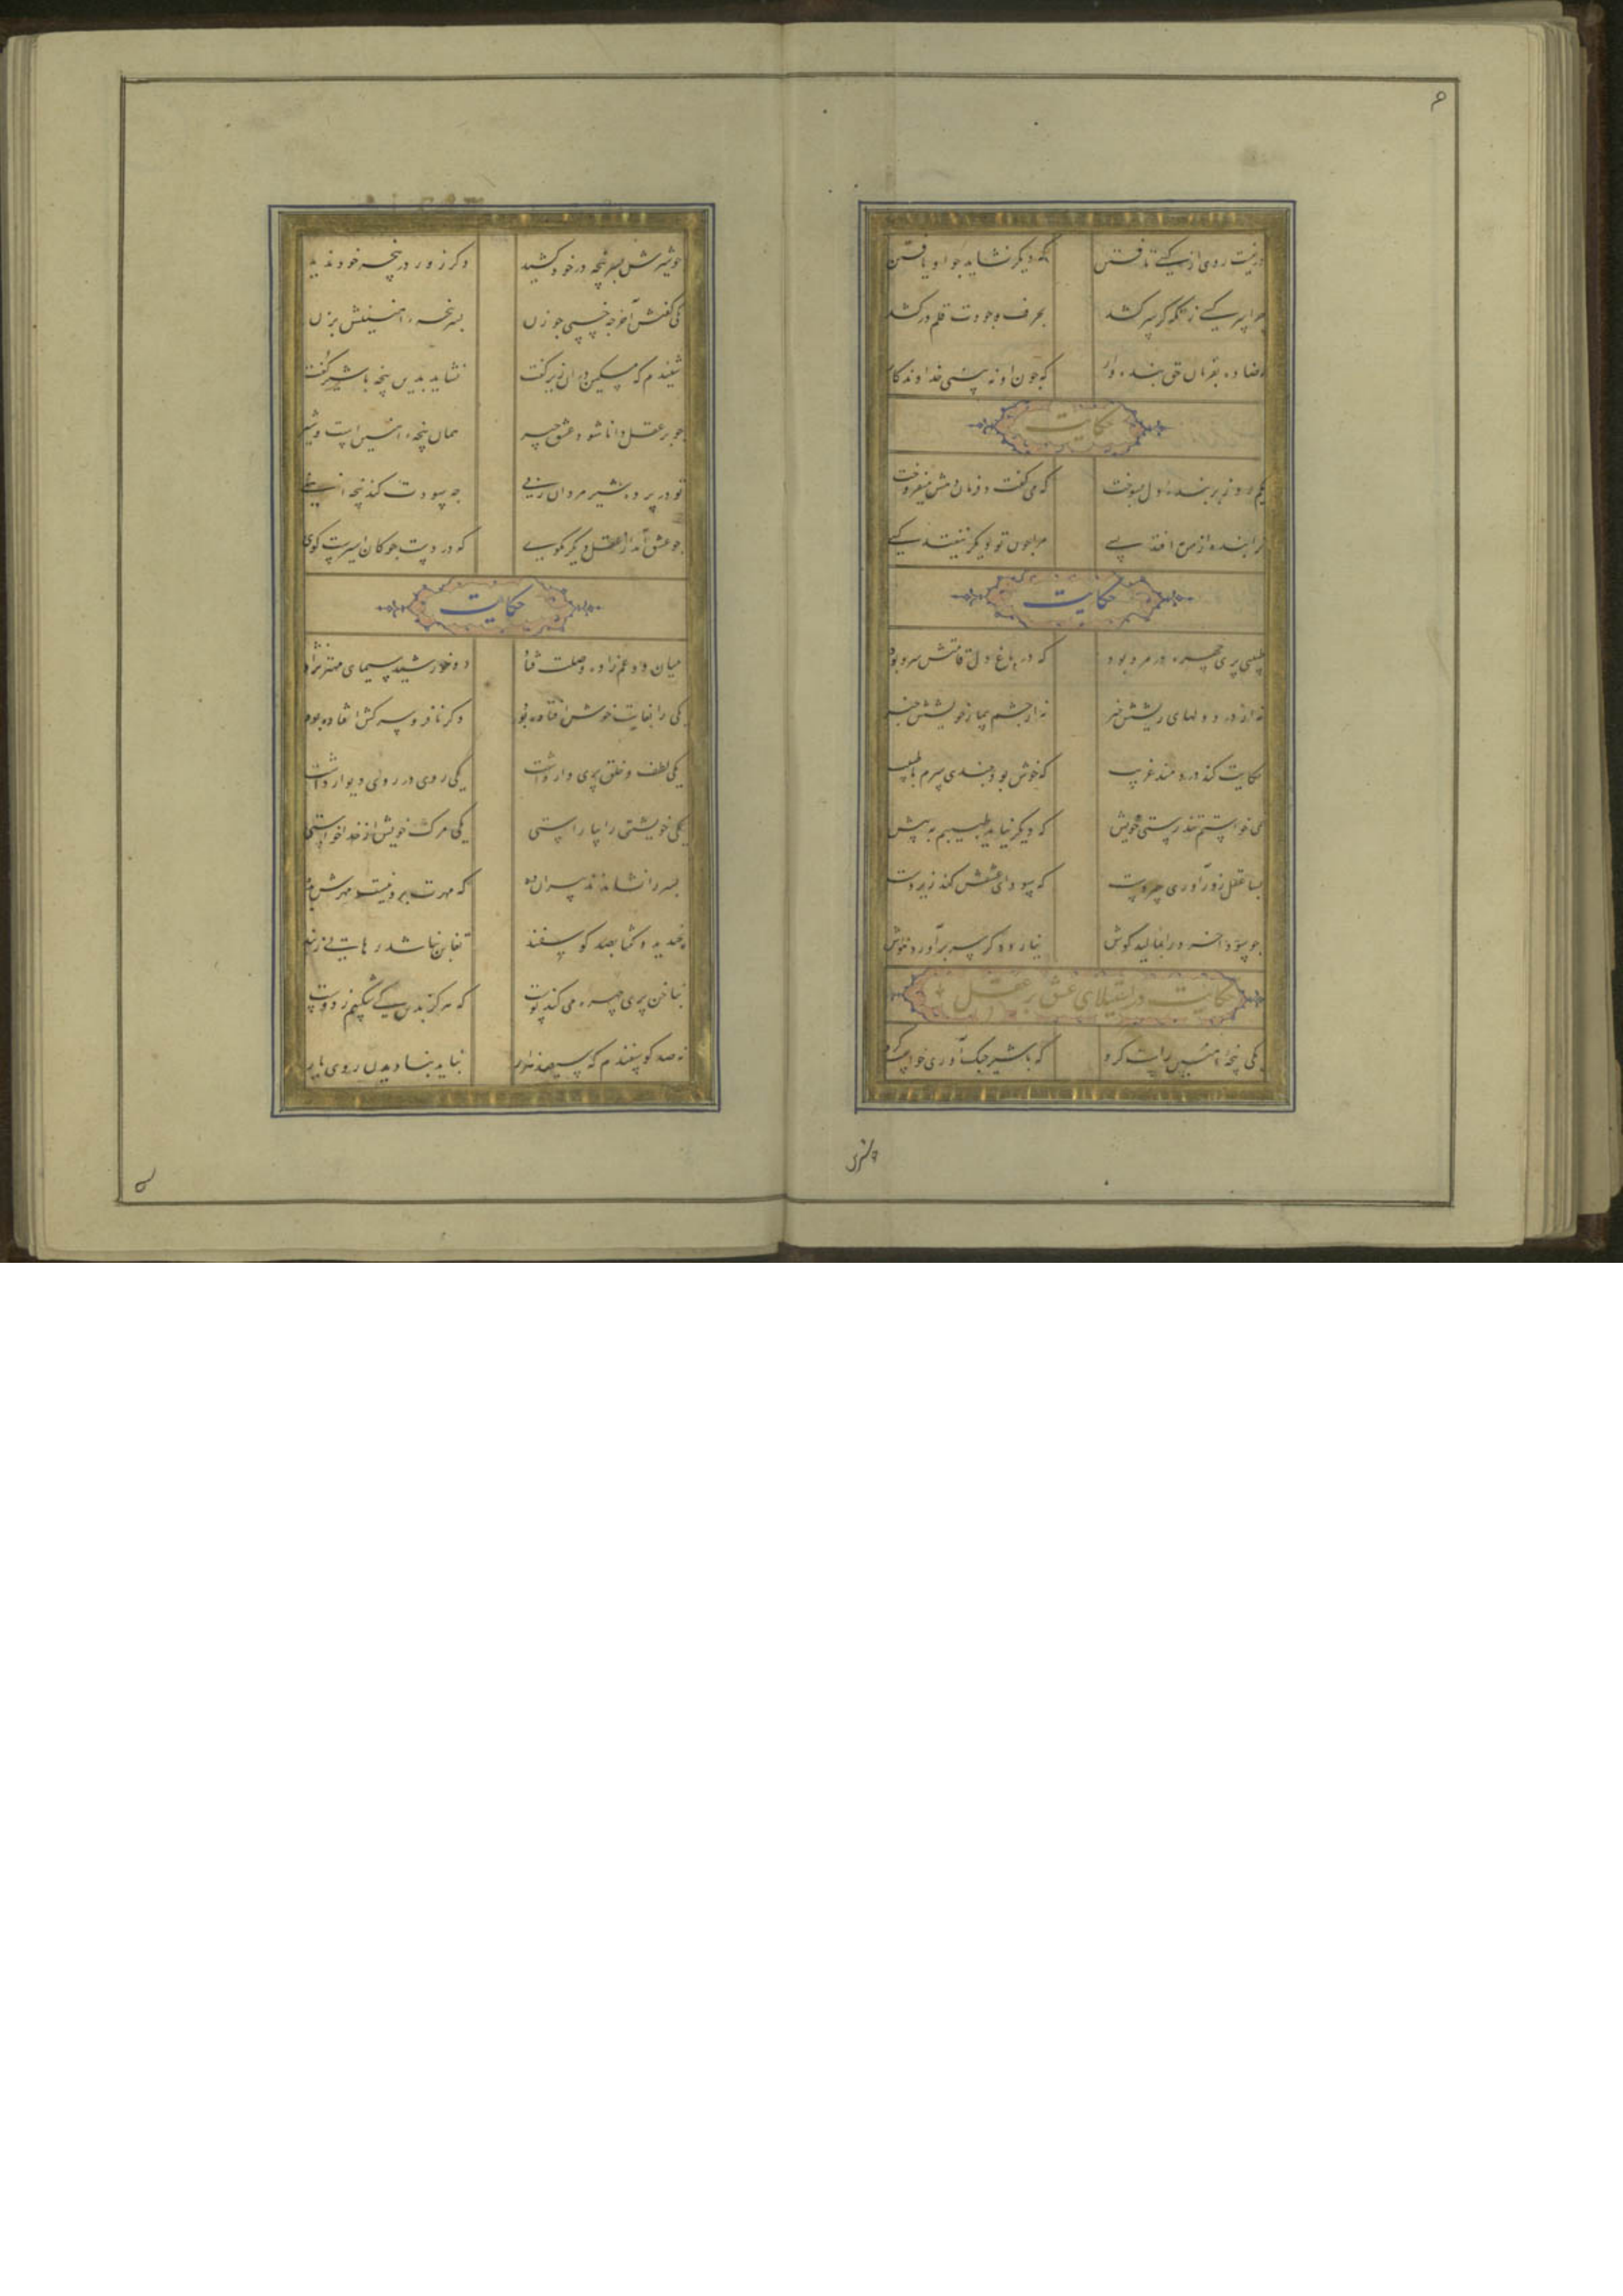 دریغست روی از کسی تافتن که دیگر نشاید چو او یافتن
چرا سرکشی زانکه گر سر کشد بحرف وجودت قلم در کشد
رضا ده بفرمان حق بنده وار که چون او نه بینی خداوندگار
حکایت
یکم روز بر بنده دل بسوخت که می گفت و فرماندهش میفروخت
ترا بنده از من به افتد بسی مرا چون تو دیگر نیفتد کسی
حکایت
طبیبی پری چهره در مرو بود که در باغ دل قامتش سرو بود
نه از درد دلهای ریشش خبر نه از چشم بیمار خویشش خبر
حکایت کند دردمند غریب که خوش بود چندی سرم با طبیب
نمی خواستم تندرستی خویش که دیگر نیاید طبیبم به پیش
بسا عقل زورآور چیردست که سودای عشقش کند زیردست
چو سودا خرد را بمالید گوش نیارد دگر سر برآورد هوش
حکایت در استیلای عشق بر عقل
یکی پنجه آهنین راست کرد که با شیر جنگ آوری خواست کرد
چو شیرش
چو شیرش بسر پنجه در خود کشید دگر زور در پنجه خود ندید
یکی گفتش آخر چه خسپی چو زن بسر پنجه آهنینش بزن
شنیدم که مسکین در آن زیر گفت نشاید بدین پنجه با شیر گفت
چو بر عقل دانا شود عشق چیر همان پنجه آهنین است و شیر
تو در پنجه شیر مرد اوژنی چه سودت کند پنجه آهنی
چو عشق آمد از عقل دیگر مگوی که در دست چوگان اسیرست گوی
حکایت
میان دو عم زاده وصلت فتاد دو خورشید سیمای مهتر نژاد
یکی را بغایت خوش افتاده بود دگر نافر و سرکش افتاده بود
یکی لطف و خلق پری وار داشت یکی روی در روی دیوار داشت
یکی خویشتن را بیاراستی یکی مرگ خویش از خدا خواستی
پسر را نشاندند پیران ده که مهرت برو نیست مهرش بده
بخندید و گفتا بصد گوسفند تغابن نباشد رهایی ز بند
بناخن پری چهره می کند پوست که هرگز بدین کی شکیبم ز دوست
نه صد گوسفندم که سیصد هزار نباید بنادیدن روی یار